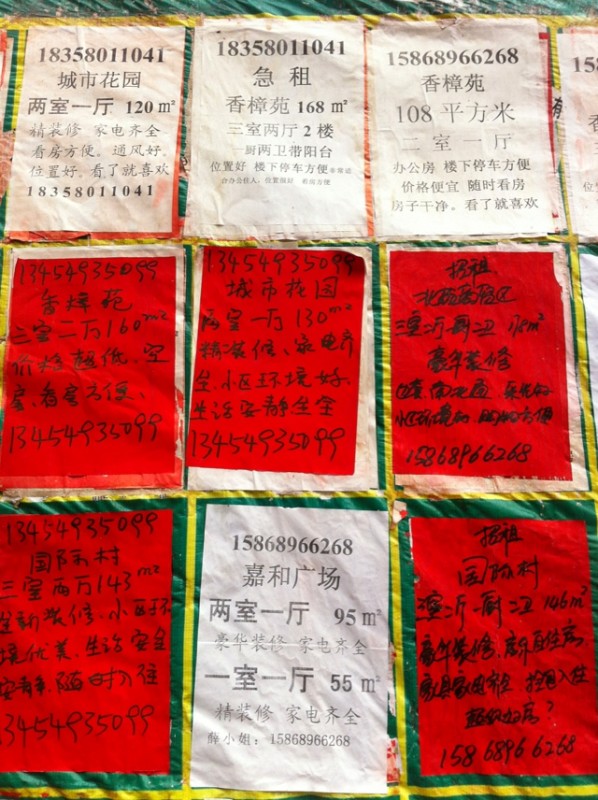 18358011041
城市花园
两室一厅 120 m²
精装修 家电齐全
看房方便。通风好。
位置好。看了就喜欢
18358011041
18358011041
急 租
香樟苑 168 m²
三室两厅 2 楼
一厨两卫带阳台
位置好 楼下停车方便
15868966268
香樟苑
108 平方米
二室一厅
办公房 楼下停车方便
价格便宜 随时看房
房子干净。看了就喜欢
13454935099
香樟苑
三室二方160m²
价格超低、空
房、看房方便、
13454935099
13454935099
城市花园
两室一方130m²
精装修、家电齐
全、小区环境好、
生活安静生全
13454935099
招租
豪华装修
15868966268
13454935099
国际村
三室两方143m²
全新装修、小区环
境优美、生活安全
安静、随时入住
13454935099
15868966268
嘉和广场
两室一厅 95 m²
豪华装修 家电齐全
一室一厅 55 m²
精装修 家电齐全
薛小姐：15868966268
招租
国际村
146m²
豪华装修、
15868966268